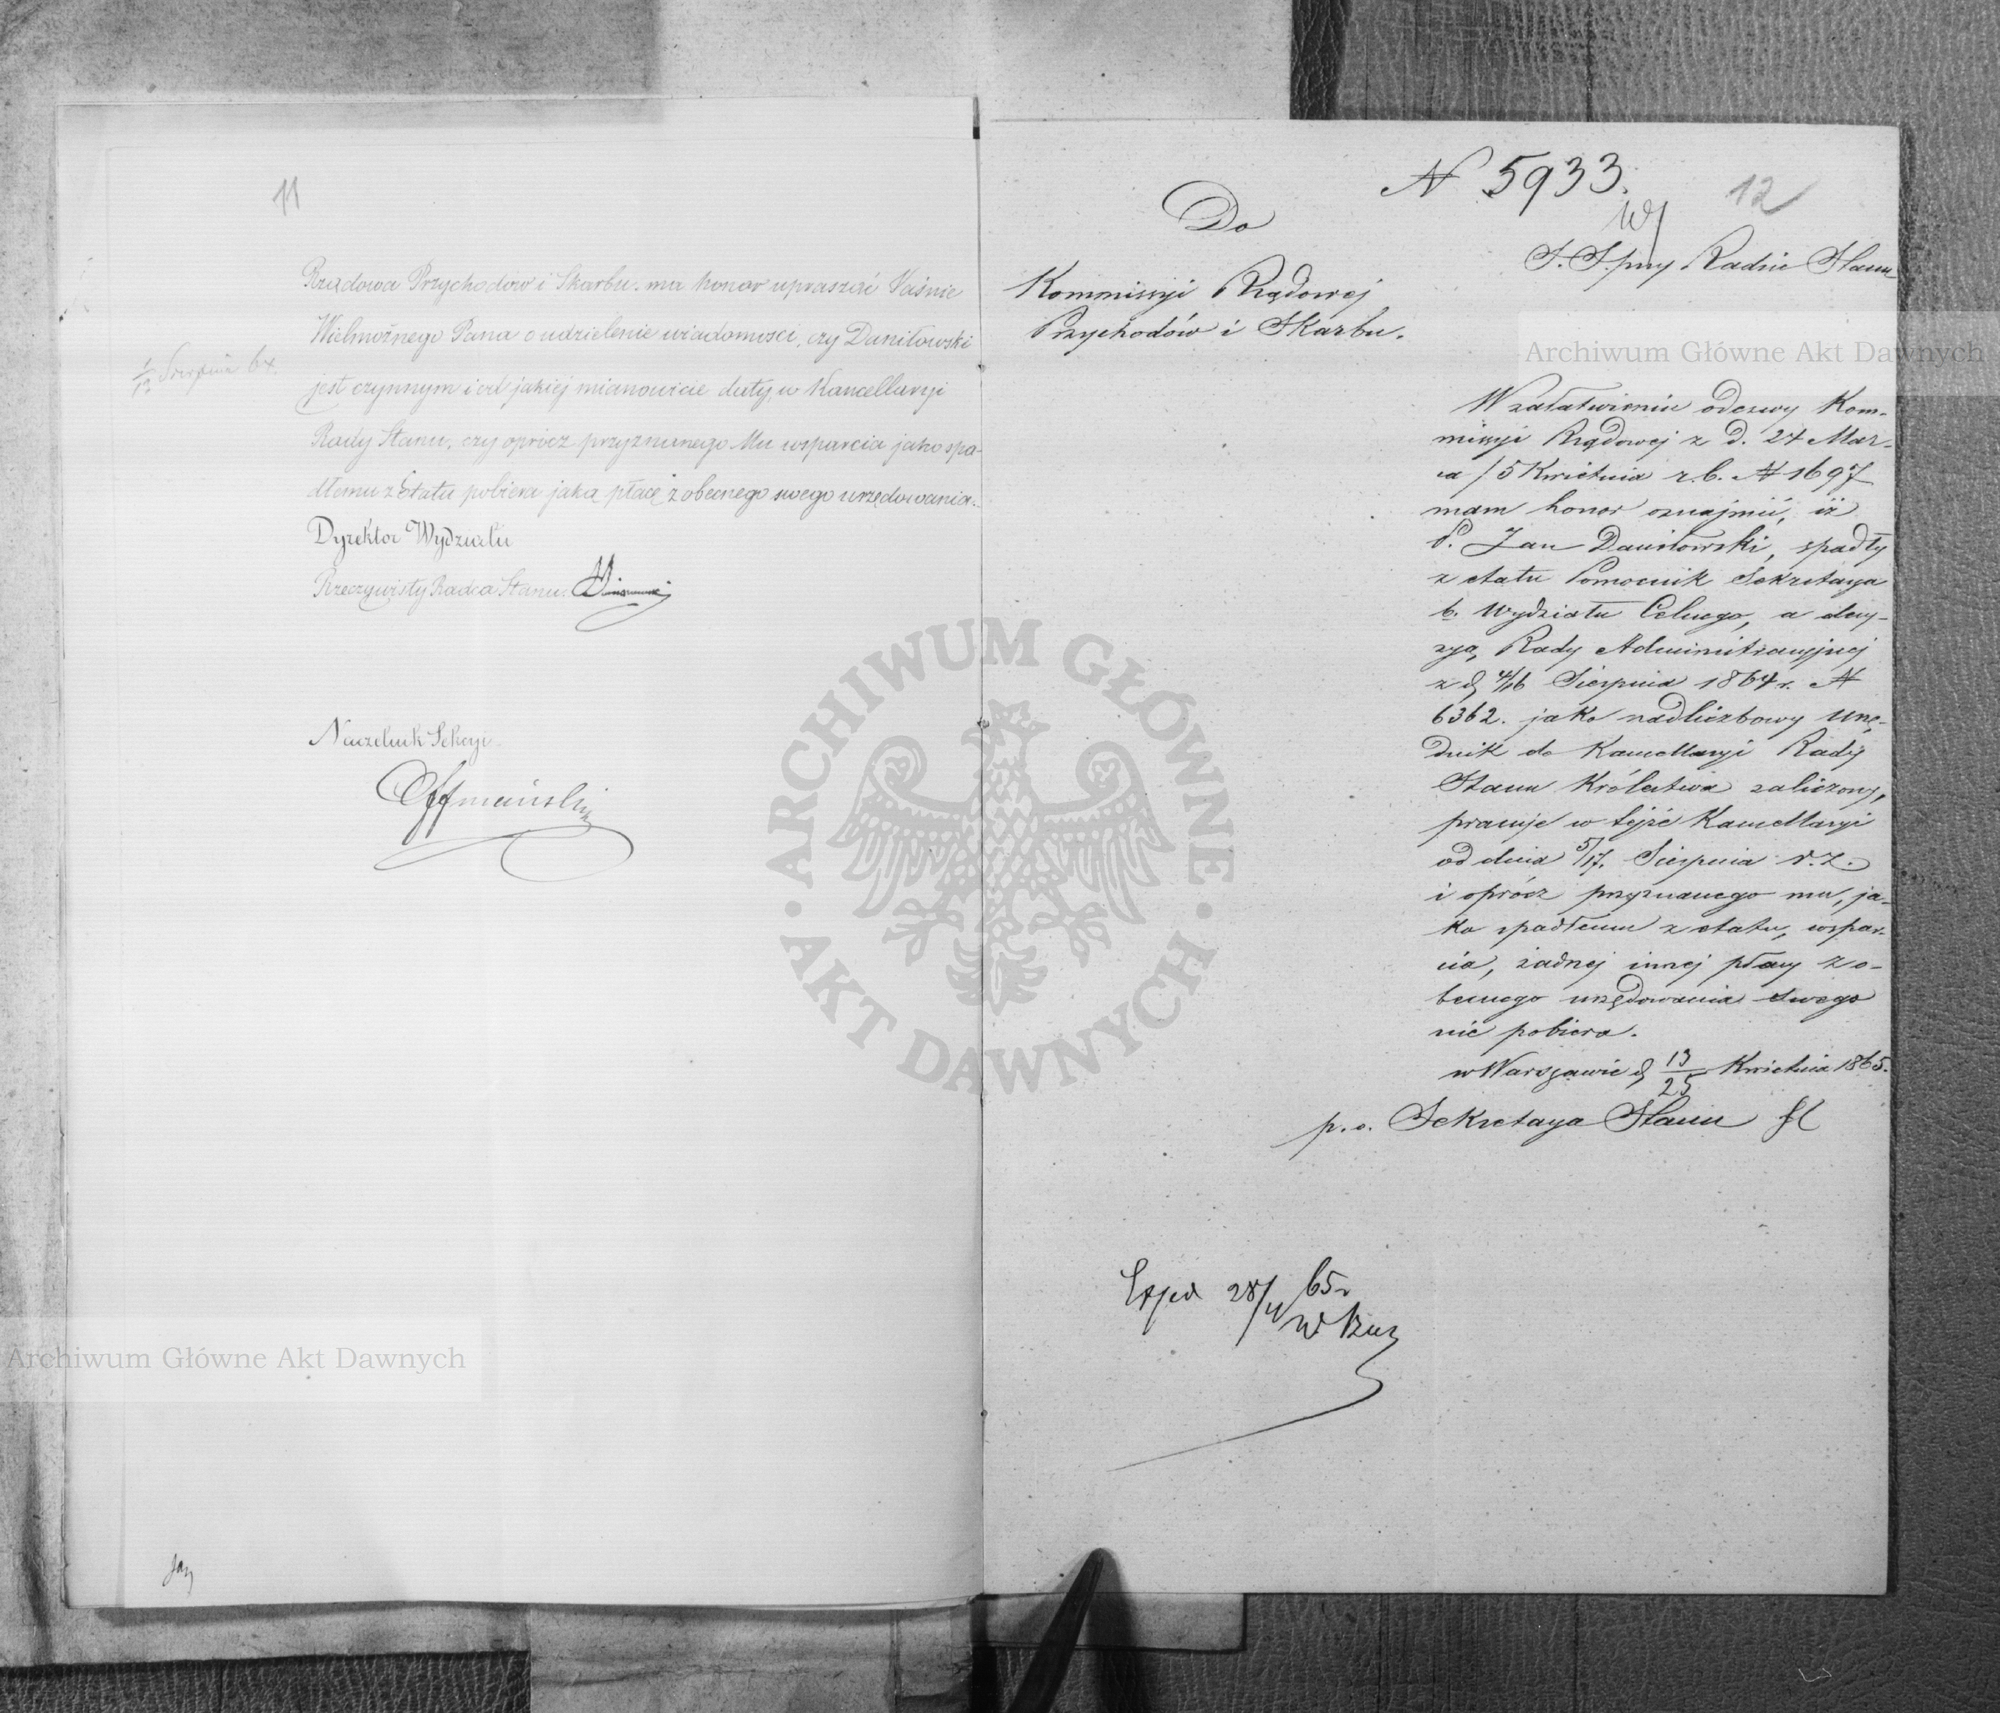 11
Rządowa Przychodów i Skarbu. ma honor upraszać Jaśnie
Wielmożnego Pana o udzielenie wiadomości, czy Daniłowski
jest czynnym i od jakiej mianowicie daty, w Kancellaryi
Rady Stanu, czy oprócz przyznanego Mu wsparcia jako spa-
dłemu z Etatu pobiera jaką płacę z obecnego swego urzędowania.
Dyrektor Wydziału
Rzeczywisty Radca Stanu.
Naczelnik Sekcyi
Offmański
Sierpnia 64.
N 5933.
12
Do
Kommissyi Rządowej
Przychodów i Skarbu.
S. S. przy Radzie Stanu
W załatwieniu odezwy Kom-
missyi Rządowej z d. 24 Mar-
ca / 5 Kwietnia r.b. N 1697
mam honor oznajmić, iż
P. Jan Daniłowski, spadły
z etatu Pomocnik Sekretarza
b. Wydziału Celnego, a decy-
zyą Rady Administracyjnej
z d. 4/16 Sierpnia 1864 r. N
6362. jako nadliczbowy Urzę-
dnik do Kancellaryi Rady
Stanu Królestwa zaliczony,
pracuje w tejże Kancellaryi
od dnia 5/17. Sierpnia r.z.
i oprócz przyznanego mu, ja-
ko spadłemu z etatu, wspar-
cia, żadnej innej płacy z o-
becnego urzędowania swego
nie pobiera.
w Warszawie d. 13/25 Kwietnia 1865.
p.o. Sekretarza Stanu
Exped 28/IV 65r
Archiwum Główne Akt Dawnych
Archiwum Główne Akt Dawnych
ARCHIWUM GŁÓWNE
AKT DAWNYCH